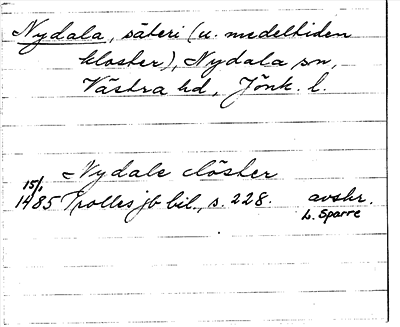 Nydala, säteri (u. medeltiden
kloster), Nydala sn,
Västra hd, Jönk. l.
Nydale closter
15/1
1485 Trolles jb bil., s. 228. avskr.
L. Sparre